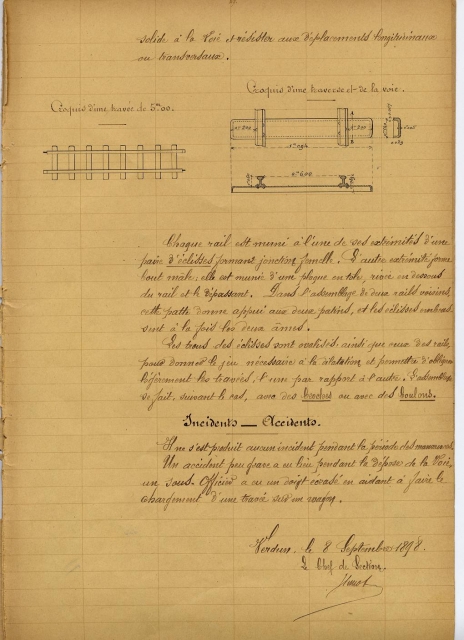 solide à la Voie et résister aux déplacements longitudinaux
ou transversaux.
Croquis d'une traverse et de la voie.
Croquis d'une travée de 5m00.
0m200
0m200
1m094
0m600
Chaque rail est muni à l'une de ses extrémités d'une
paire d'éclisses formant jonction femelle. L'autre extrémité forme
bout mâle; elle est munie d'une plaque en tôle, rivée en dessous
du rail et le dépassant. Dans l'assemblage de deux rails voisins,
cette patte donne appui aux deux patins, et les éclisses
sent à la fois les deux âmes.
Les trous des éclisses sont ovalisés ainsi que ceux des rails
pour donner le jeu nécessaire à la dilatation et permettre d'obliquer
légèrement les travées, l'une par rapport à l'autre. L'assemblage
se fait, suivant le cas, avec des Crochets ou avec des Boulons.
Incidents — Accidents.
Il ne s'est produit aucun incident pendant la période des manœuvres.
Un accident peu grave a eu lieu pendant la dépose de la Voie,
un sous-Officier a eu un doigt écrasé en aidant à faire le
chargement d'une travée sur un wagon.
Verdun, le 8 Septembre 1898.
Le Chef de Section,